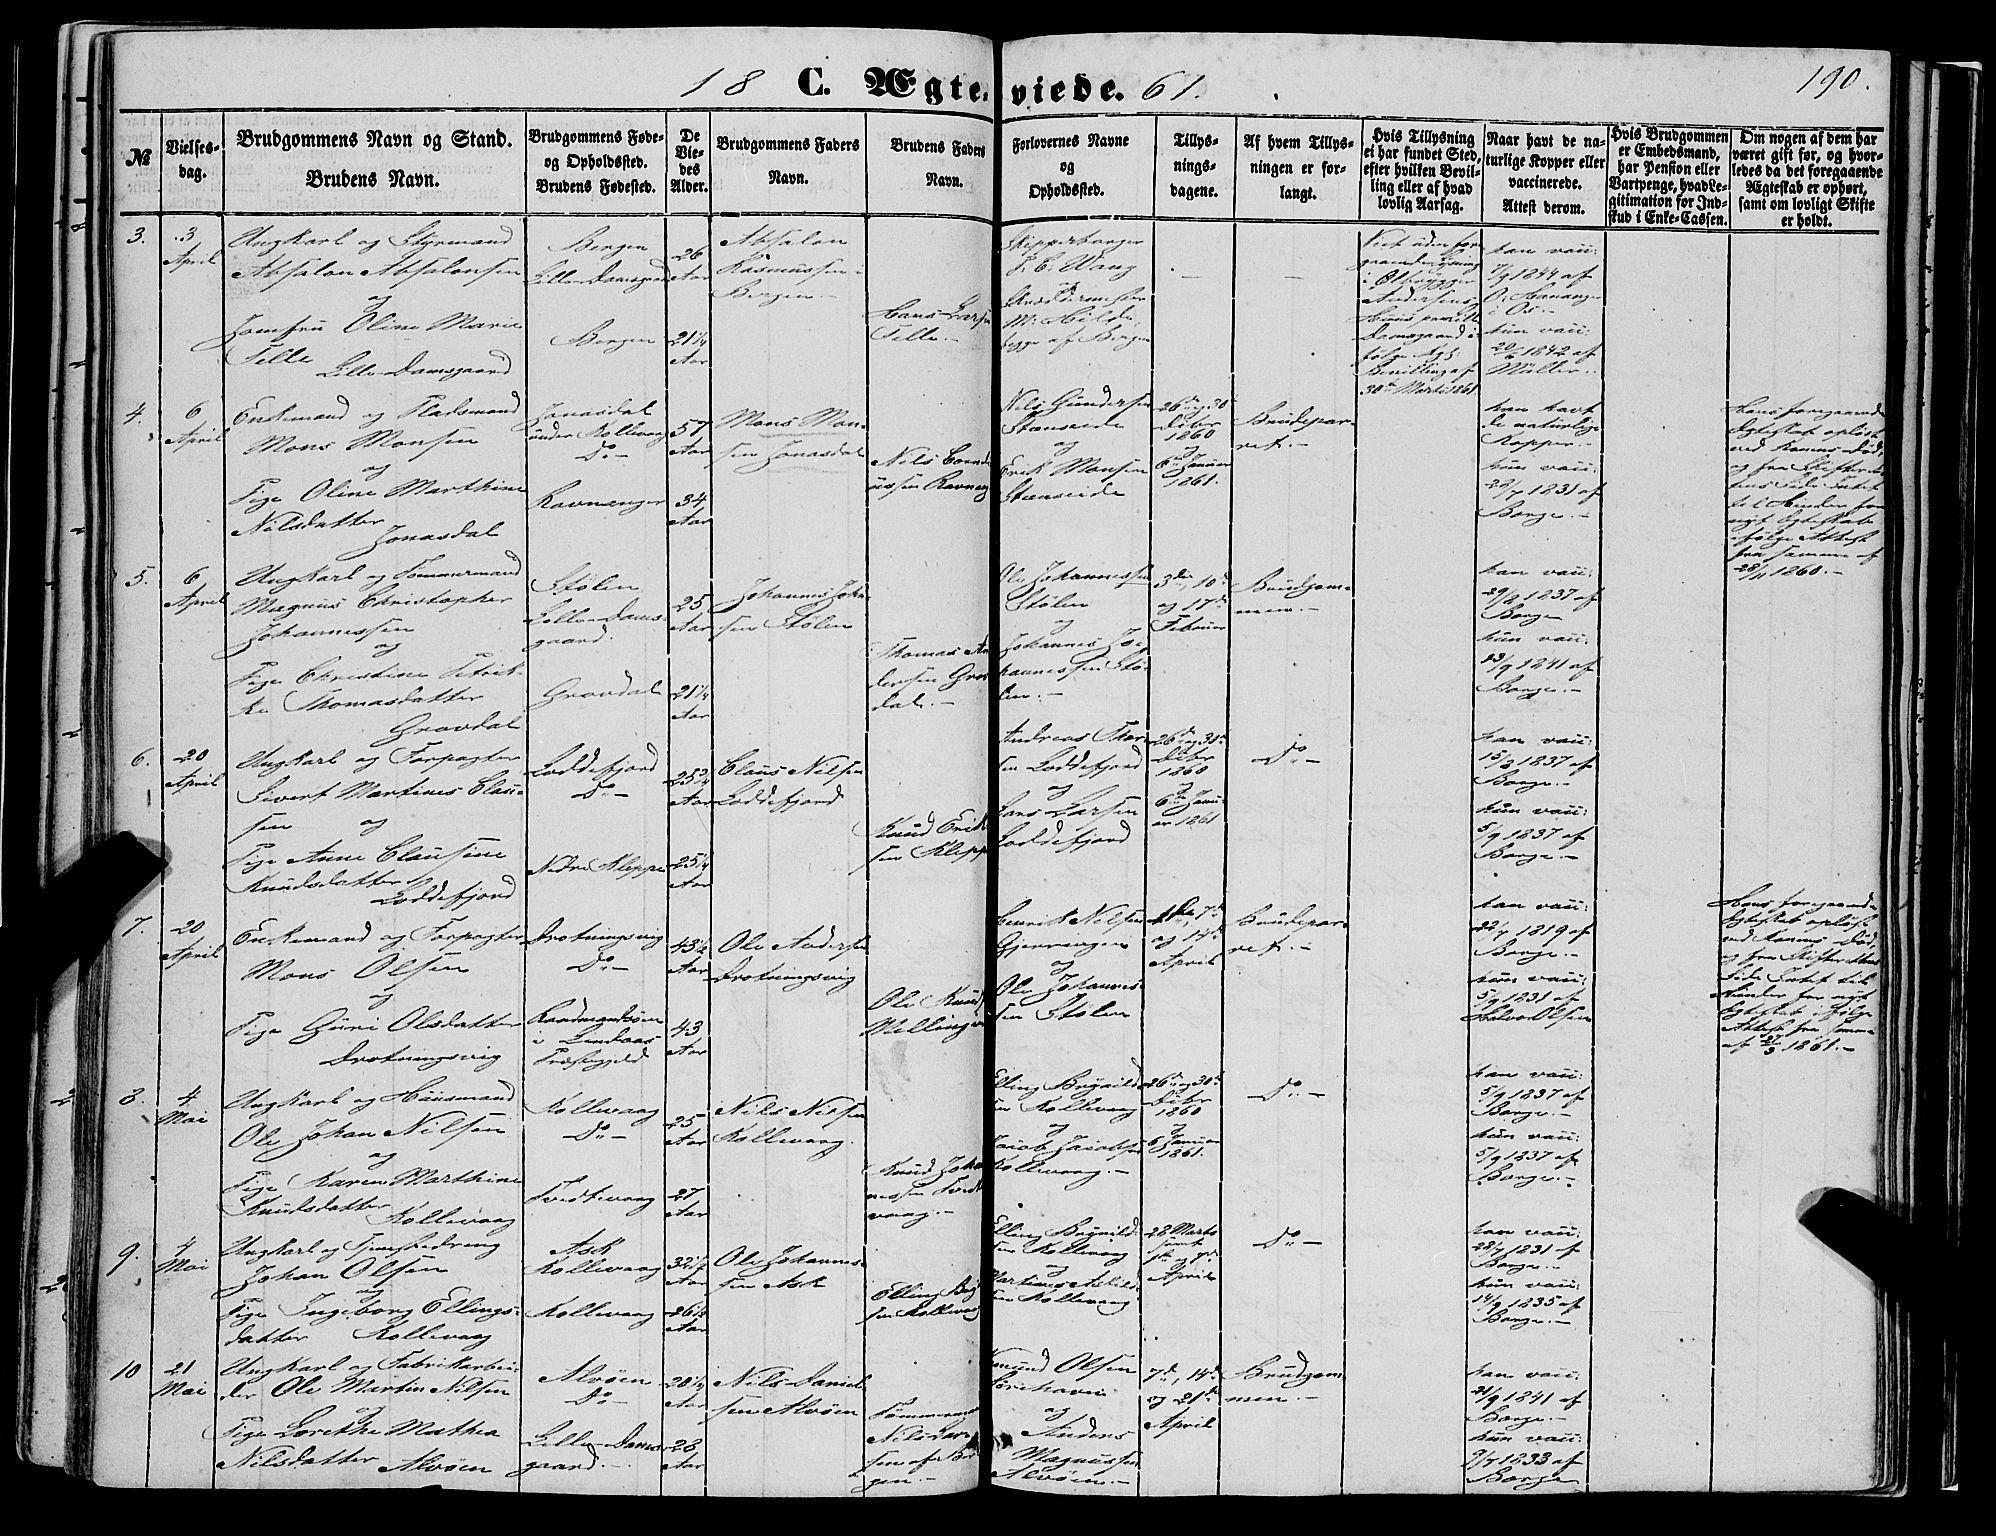 18 C. Ægteviede. 61.
190.
№
Vielses-
dag.
Brudgommens Navn og Stand.
Brudens Navn.
Brudgommens Føde-
og Opholdssted.
Brudens Fødested.
De
Vie-
des
Alder.
Brudgommens Faders
Navn.
Brudens Faders
Navn.
Forlovernes Navne
og
Opholdssted.
Tillys-
nings-
dagene.
Af hvem Tillys-
ningen er for-
langt.
Hvis Tillysning
ei har fundet Sted,
efter hvilken Bevil-
ling eller af hvad
lovlig Aarsag.
Naar havt de na-
turlige Kopper eller
vaccinerede.
Attest derom.
Hvis Brudgommen
er Embedsmand,
har Pension eller
Vartpenge, hvad Le-
gitimation for Ind-
skud i Enke-Cassen.
Om nogen af dem har
været gift før, og hvor-
ledes da det foregaaende
Ægteskab er ophørt,
samt om lovligt Skifte
er holdt.
3.
3
April
Ungkarl og Styrmand
Absalon Absalonsen
og
Jomfru Oline Marie
Telle
Lille Damsgaard
Bergen
Lille-Damsgaard
Bergen
26
Aar
21 1/4
Aar
Absalon
Rasmussen
Bergen
Hans Larsen
Telle.
Skipperborger
J. C. Wang
og
M. Hilde,
begge af Bergen
Viet uden for-
i Ølbrygger
Andersens
Huus paa Lille
Damsgaard i-
følge Kgl.
Bevilling af
30te Marts 1861
han vacc:
7/9 1844 af
O. Hauange
i Os.
hun vacc:
20/6 1842 af
Müller.
4.
6
April
Enkemand og Pladsmand
Mons Monsen
og
Pige Oline Marthine
Nilsdatter
Jonasdal
Jonasdal
under Kollevaag
Do
Ravnanger
57
Aar
34
Aar
Mons Mon-
sen Jonasdal
Nils
Ravnang
Nils Gundersen
Stenseide
og
Erik Monsen
Stenseide
26de og 30te
Debr
1860
og
6te Januar
1861.
Brudepar-
ret.
han havt
de naturlige
Kopper.
hun vacc:
28/7 1831 af
Borge.
Hans foregaaende
Egteskab opløst
ved Konens Død,
og fra Skifteret-
tens Side Intet
til Hinder for
nyt Egteskab
ifølge Attest
fra samme af
28/11 1860.
5.
6
April
Ungkarl og Tømmermand
Magnus Christopher
Johannessen
og
Pige Christine Petrik-
ke Thomasdatter
Gravdal
Stølen
Lille-Dams-
gaard.
Gravdal
25
Aar
21 1/4
Aar
Johannes Johan-
sen Stølen
Thomas An-
dersen Grav-
dal.
Ole Johannessen
Stølen
og
Johannes Jo-
hannessen Stø-
len.
3die, 10de
og 17de
Februar
Brudgom-
men.
han vacc:
29/8 1837 af
Borge
hun vacc:
23/9 1841 af
Borge.
6.
20
April
Ungkarl og Forpagter
Sivert Martines Clau-
sen og
Pige Anne Clausine
Knudsdatter
Loddefjord
Loddefjord
Do
Nedre Kleppe
25 3/4
Aar
25 1/4
Aar
Claus Nilsen
Loddefjord
Knud Erik-
sen Kleppe
Andreas
Loddefjord
og
Lars Larsen
Loddefjord
26de og 30te
Debr
1860
og
6te Janu-
ar 1861
Do
han vacc:
15/8 1837 af
Borge.
hun vacc:
5/9 1837 af
Borge.
7.
20
April
Enkemand og Forpagter
Mons Olsen
og
Pige Guri Olsdatter
Drotningsvig
Drotningsvig
Do
i Lindaas
Præstegjeld
43 1/2
Aar
43
Aar
Ole Andersen
Drotningsvig
Ole Knud
Henrik Nilsen
Gjerningen
og
Ole Johannes-
sen Stølen
1ste, 7de
og 14de
April
Brudepar-
ret.
han vacc:
22/7 1819 af
Borge.
hun vacc:
5/9 1831 af
Halvor Olsen
Hans foregaaende
Egteskab opløst
ved Konens Død,
og fra Skifterettens
Side Intet til
Hinder for nyt
Egteskab ifølge
Attest fra samme
af 27/3 1861.
8.
4
Mai
Ungkarl og Huusmand
Ole Johan Nilsen
og
Pige Karen Marthine
Knudsdatter
Kollevaag
Kollevaag
Do
Tveitevaag
25
Aar
27
Aar
Nils Nilsen
Kollevaag.
Knud Joha-
nessen Tveit-
vaag.
Elling Brynild-
sen Kollevaag
og
Jacob Jacobsen
Kollevaag.
26de og 30te
Debr
1860
og
6 Januar
1861.
Do
han vacc:
5/9 1837 af
Borge.
hun vacc:
5/9 1837 af
Borge.
9.
4
Mai
Ungkarl og Tjenestedreng
Johan Olsen
og
Pige Ingeborg Ellings-
datter Kollevaag
Ask
Kollevaag
Kollevaag
32 1/2
Aar
26 1/2
Aar
Ole Johannes-
sen Ask
Elling
Kollevaag
Elling Brynild-
sen Kollevaag
og
Kollevaag
28 Marts
samt
1ste og 7de
April
Do
han vacc:
22/7 1831 af
Borge.
hun vacc:
14/9 1835 af
Borge.
10
21
Mai
Ungkarl og Fabrikarbei-
der Ole Martin Nilsen
og
Pige Lorethe Mathea
Nilsdatter Alvøen
Alvøen
Do
Lille-Dams-
gaard.
20 1/4
Aar
28
Aar
Nils Daniel-
sen Alvøen
Tømmermand
Nils Lar-
sen af Ber-
gen.
Knud Olsen
og
Anders
Magnussen
Alvøen.
7de, 14de
og 21de
April
Brudgom-
men.
han vacc:
21/9 1841 af
Borge.
hun vacc:
9/7 1833 af
Borge